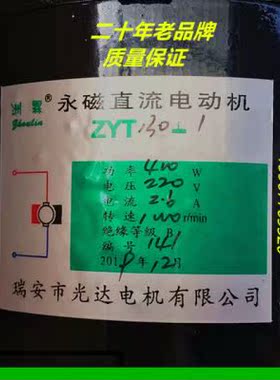 二十年老品牌
质量保证
永磁直流电动机
ZYT 130-1
功率 400 W
电压 220 V
电流 2.6 A
转速 1000 r/min
绝缘等级 B
编号 141
2019年12月
瑞安市光达电机有限公司